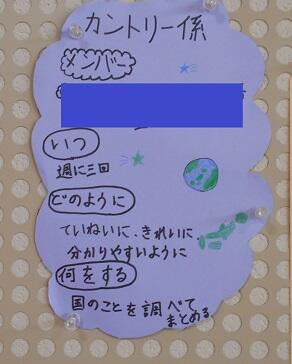 カントリー係
メンバー
いつ
週に三回
どのように
ていねいに、きれいに
分かりやすいように
何をする
国のことを調べて
まとめる